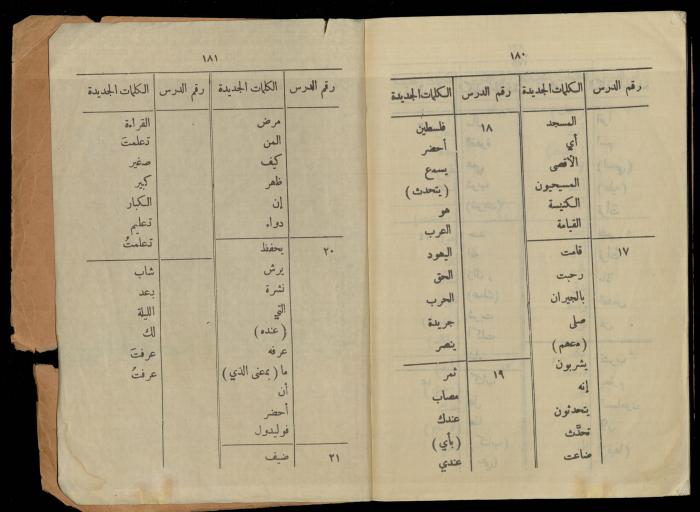 ١٨٠
رقم الدرس
الكلمات الجديدة
المسجد
أي
الأقصى
المسيحيون
الكنيسة
القيامة
١٧
قامت
رحبت
بالجيران
صلى
(معهم)
يشربون
إنه
يتحدثون
تحدَّث
ضاعت
رقم الدرس
الكلمات الجديدة
١٨
فلسطين
أحضر
يسمع
(يتحدث)
هو
العرب
اليهود
الحق
الحرب
جريدة
ينصر
١٩
ثمر
مصاب
عندك
(بأي)
عندي
١٨١
رقم الدرس
الكلمات الجديدة
مرض
المن
كيف
ظهر
إن
دواء
٢٠
يحفظ
يرش
نشرة
التي
(عنده)
عرفه
ما (بمعنى الذي)
أن
أحضر
فوليدول
٢١
ضيف
رقم الدرس
الكلمات الجديدة
القراءة
تعلمتَ
صغير
كبير
الكبار
تعليم
تعلمتُ
شاب
بعد
الليلة
لك
عرفتَ
عرفتُ